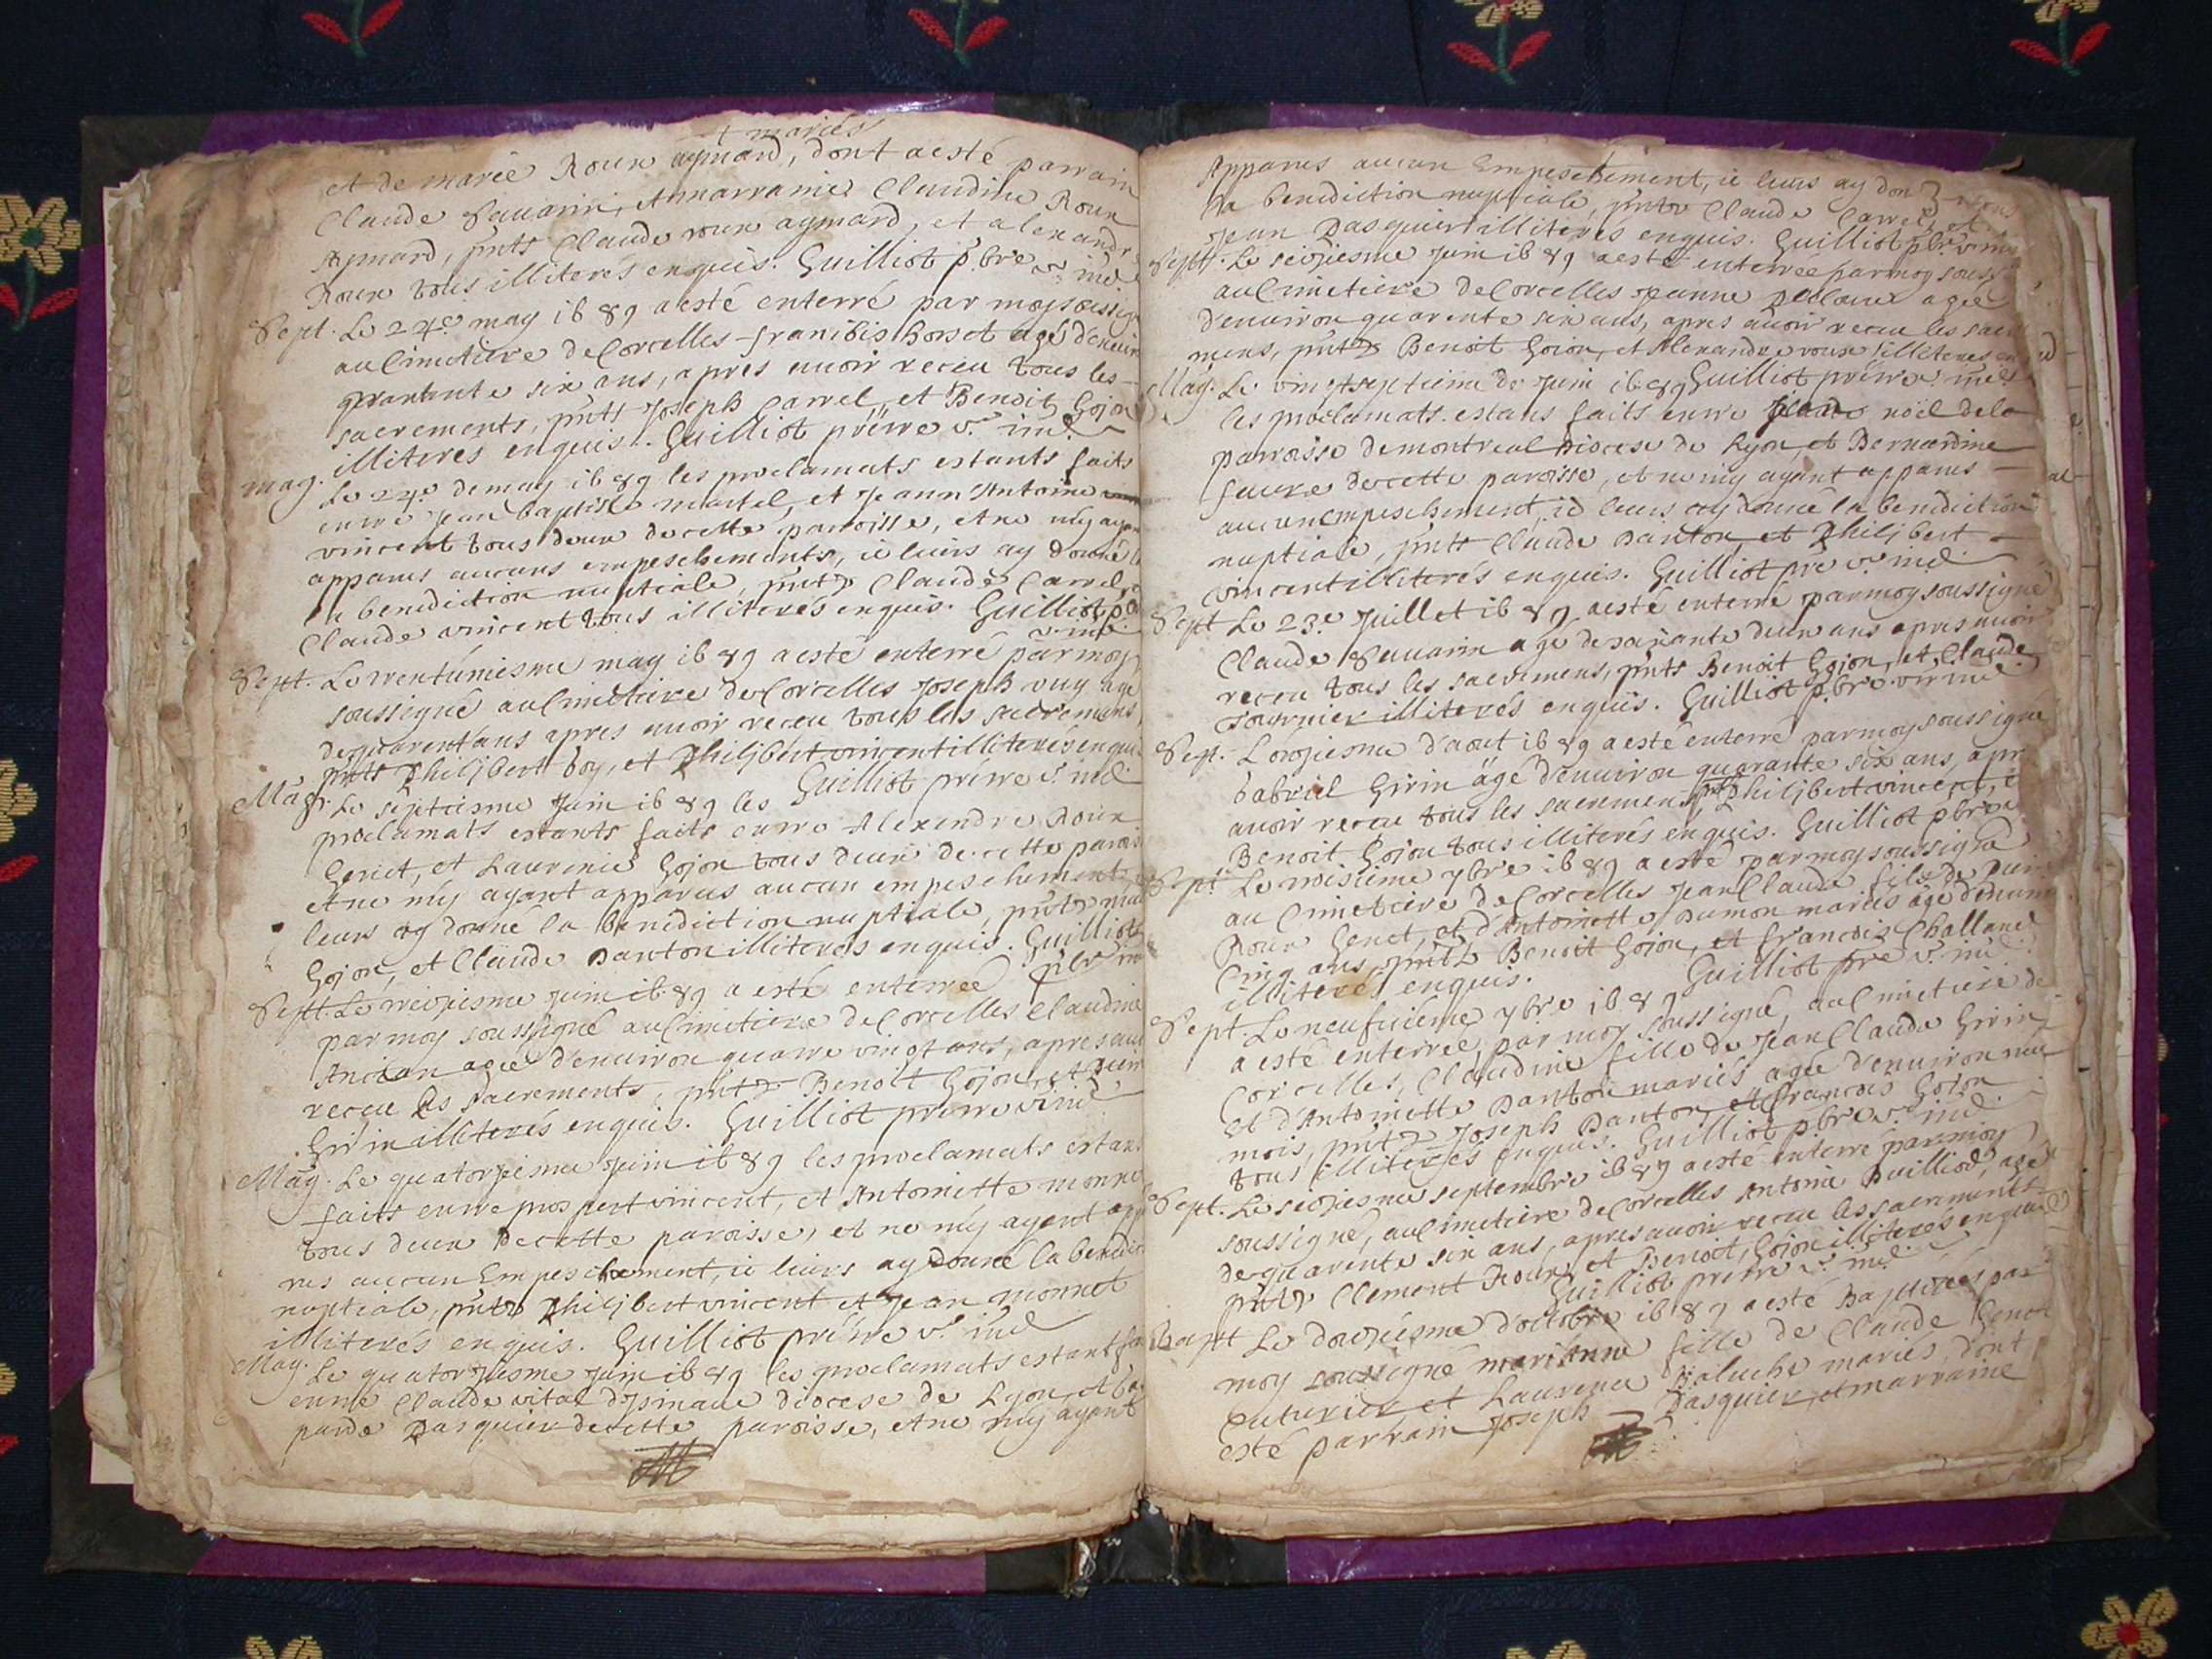 mariés
et de marie Roux aymard, dont a esté parrain
Claude Sauarin, et marraine Claudine Roux
Aymard, pnts Claude roux aymard, et alexandre
Roux tous illiterés enquis. Guilliot pbre v. ind
Sept. Le 24e may 1689 a esté enterré par moy soussig
au Cimetiere de Corcelles francois borset agé d'enuir
quarante six ans, apres auoir receu tous les
sacrements, pnts Joseph Carrel, et Benoit Gojon
illiterés enquis. Guilliot prêtre v. ind.
Mag. Le 24e de may 1689 les proclamats estants faits
entre Jean baptiste martel, et Jeann' Antoine
vincent tous deux de cette parroisse, et ne m'y ayant
apparus aucuns empeschements, ie leurs ay donné
la benediction nuptiale, pnts Claude Carrel,
Claude vincent tous illiterés enquis. Guilliot pbre
v. ind.
Sept. Le trentuniesme may 1689 a esté enterré par moy
soussigné au Cimetiere de Corcelles Joseph vuy agé
de quarent'ans apres auoir receu tous les sacremens,
pnts Philibert boy, et Philibert vincent illiterés enquis
Guilliot prêtre v. ind.
Mag. Le septiesme Juin 1689 les
proclamats estants faits entre Alexandre Roux
Genet, et Laurence Gojon tous deux de cette parois
et ne m'y ayant apparus aucun empeschement,
leurs ay donné la benediction nuptiale, pnts
Gojon, et Claude Danton illiterés enquis. Guilliot
pbre ind
Sept. Le treiziesme Juin 1689 a esté enterrée
par moy soussigné au Cimetiere de Corcelles Claudine
Ancian agée d'enuiron quatre vingt ans, apres auoir
receu les sacrements, pnts Benoit Gojon, et
Girin illiterés enquis. Guilliot prêtre v. ind
Mag. Le quatorziesme Juin 1689 les proclamats estans
faits entre prospert vincent, et Antoinette monnet
tous deux de cette paroisse, et ne m'y ayant appa
rus aucun Empeschement, ie leurs ay donné la benedic
nuptiale, pnts Philibert vincent et Jean monnet
illiterés enquis. Guilliot prêtre v. ind
Mag. Le quatorziesme Juin 1689 les proclamats estant
entre Claude vital diocese de Lyon, et
parde Pasquier de cette paroisse, et ne m'y ayant
Apparus aucun Empeschement, ie leurs ay don
la benediction nuptiale, pnts Claude Carrel, et
Jean Pasquier illiterés enquis. Guilliot pbre v. ind
Sept. Le seiziesme Juin 1689 a esté enterrée par moy souss
au Cimetiere de Corcelles Jeanne agée
d'enuiron quarente six ans, apres auoir receu les sacre
mens, pnts Benoit Gojon, et Alexandre roux illiteres en
Guilliot prêtre v. ind
Mag. Le vingt septieme de Juin 1689
les proclamats estans faits entre noël de la
parroisse de montreal Diocese de Lyon, et Bernardine
faure de cette paroisse, et ne m'y ayant apparus
aucun empeschement, ie leurs ay donné la benediction
nuptiale, pnts Claude Danton, et Philibert
vincent illiterés enquis. Guilliot pre v. ind.
Sept Le 23e Juillet 1689 a esté enterré par moy soussigné
Claude Sauarin agé de soixante deux ans apres auoir
receu tous les sacremens, pnts Benoit Gojon, et Claude
fournier illiterés enquis. Guilliot pbre v. ind
Sept. L'onziesme d'aout 1689 a esté enterré par moy soussigné
Gabriel Girin agé d'enuiron quarante six ans, apr
auoir receu tous les sacremens pnts Philibert vincent,
Benoit Gojon tous illiterés enquis. Guilliot pbre v
Sept. Le troisieme 7bre 1689 a esté par moy soussigné
au Cimetiere de Corcelles Jean Claude fils de
Roux Genet, et d'Antoinette Dumon mariés agé d'enuiron
Cinq ans, pnts Benoit Gojon, et francois Challand
illiterés enquis. Guilliot pre v. ind.
Sept. Le neufuiéme 7bre 1689
a esté enterrée par moy soussigné, au Cimetiere de
Corcelles, Claudine fille de Jean Claude Girin,
et d'Antoinette Danton mariés agée d'enuiron neuf
mois, pnts Joseph Danton, et francois Gojon
tous illiterés enquis. Guilliot pbre v. ind.
Sept. Le seiziesme septembre 1689 a esté enterré par moy
soussigné, au Cimetiere de Corcelles Antoine Builliod, agé
de quarente six ans, apres auoir receu les sacrements
pnts Clement Roux, et Benoit Gojon illiterés enquis
Guilliot prêtre v. ind.
Bapt Le douziésme d'octobre 1689 a esté Baptizée par
moy soussigné mari'Anne fille de Claude Genet
Cuturier et Laurence Baluche mariés, dont
esté parrain Joseph Pasquier, et marraine